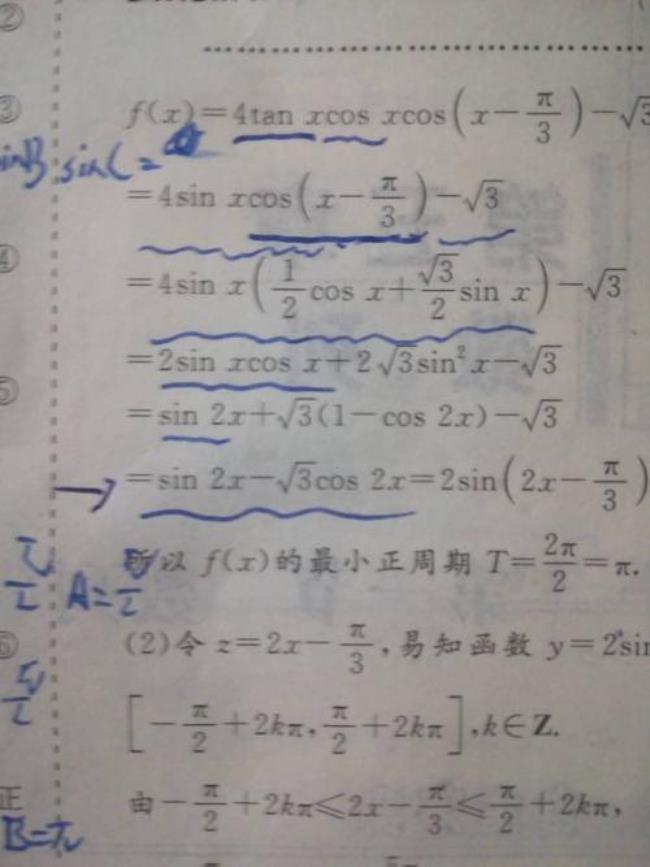 ②
③
f(x)=4tan xcos xcos(x-π/3)-√3
inB sinC=
=4sin xcos(x-π/3)-√3
④
=4sin x(1/2cos x+√3/2sin x)-√3
=2sin xcos x+2√3sin²x-√3
⑤
=sin 2x+√3(1-cos 2x)-√3
→ =sin 2x-√3cos 2x=2sin(2x-π/3)
所以 f(x)的最小正周期 T=2π/2=π.
A=
⑥
(2)令 z=2x-π/3,易知函数 y=2sin
[-π/2+2kπ,π/2+2kπ],k∈Z.
正
由-π/2+2kπ≤2x-π/3≤π/2+2kπ,
B=